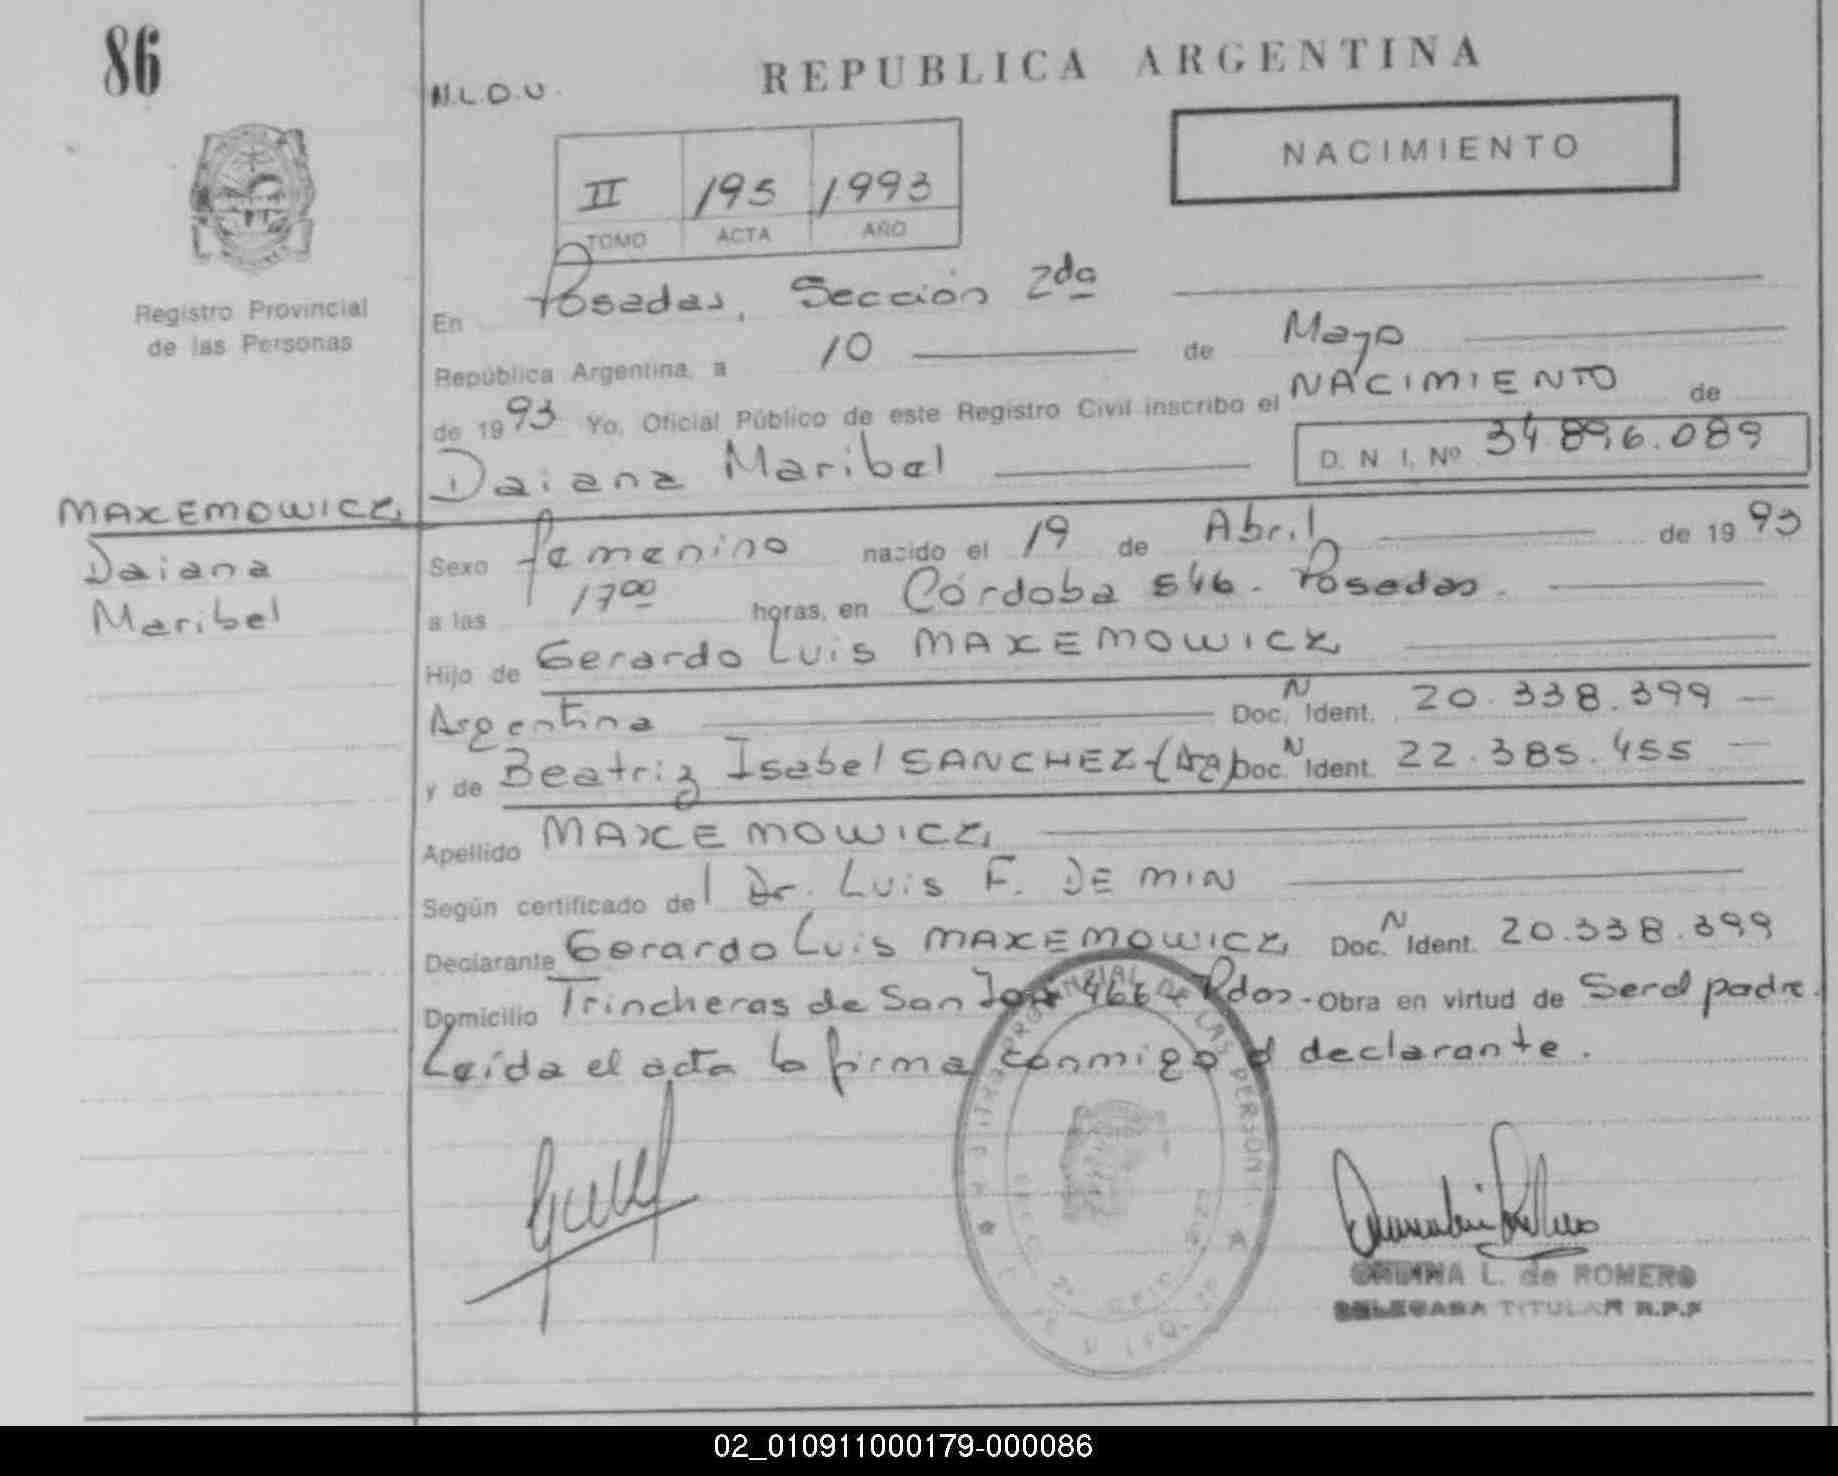 86
N.L.O.U.
REPUBLICA ARGENTINA
NACIMIENTO
II 195 1993
TOMO ACTA AÑO
Registro Provincial
de las Personas
En Posadas, Sección 2da
República Argentina, a 10 de Mayo
de 1993 Yo, Oficial Público de este Registro Civil inscribo el NACIMIENTO de
Daiana Maribel D. N. I. Nº 34.896.089
MAXEMOWICZ
Daiana
Maribel
Sexo femenino nacido el 19 de Abril de 1993
a las 1700 horas, en Córdoba 546. Posadas.
Hijo de Gerardo Luis MAXEMOWICZ
Argentina Doc. N Ident. 20.338.399
y de Beatriz Isabel SANCHEZ-(Aa) Doc. N Ident. 22.385.455
Apellido MAXEMOWICZ
Según certificado del Dr. Luis F. DE MIN
Declarante Gerardo Luis MAXEMOWICZ Doc. N Ident. 20.338.399
Domicilio Trincheras de San José 466 - Pdas. - Obra en virtud de Ser el padre.
Leída el acta la firma conmigo el declarante.
PROVINCIAL DE LAS PERSONAS
L. de ROMERO
DELEGADA TITULAR R.P.P
02_010911000179-000086